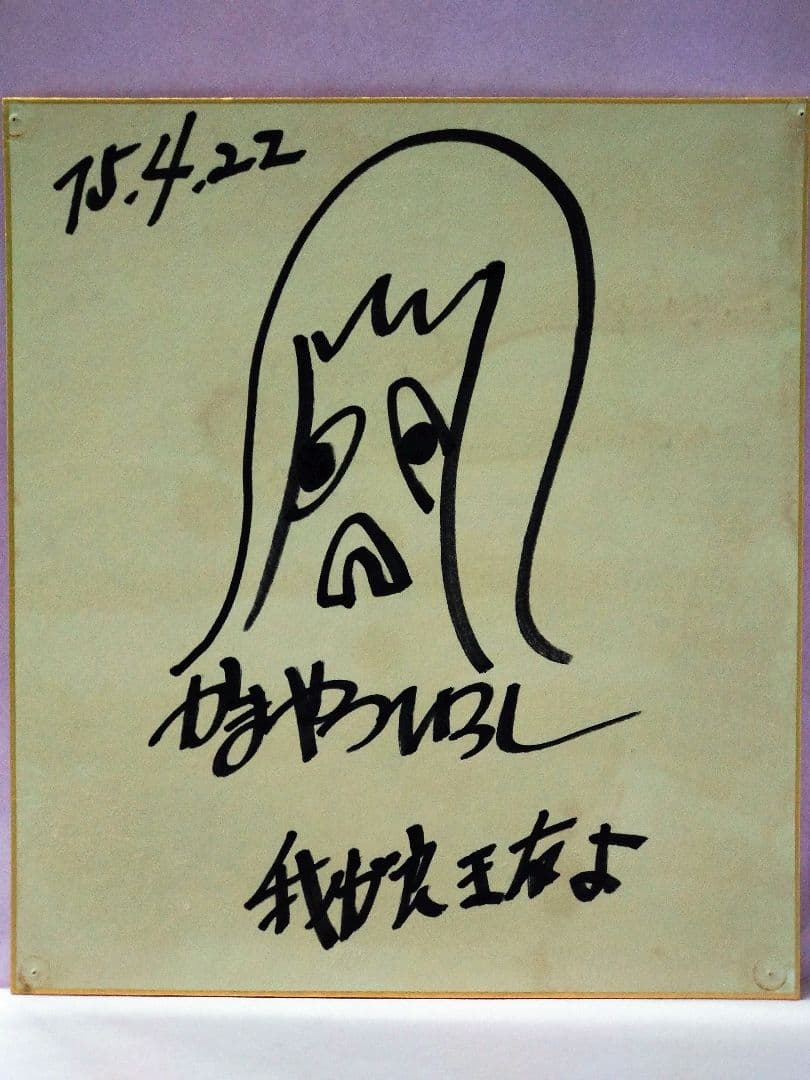 75.4.22
かまやつひろし
我が良き友よ